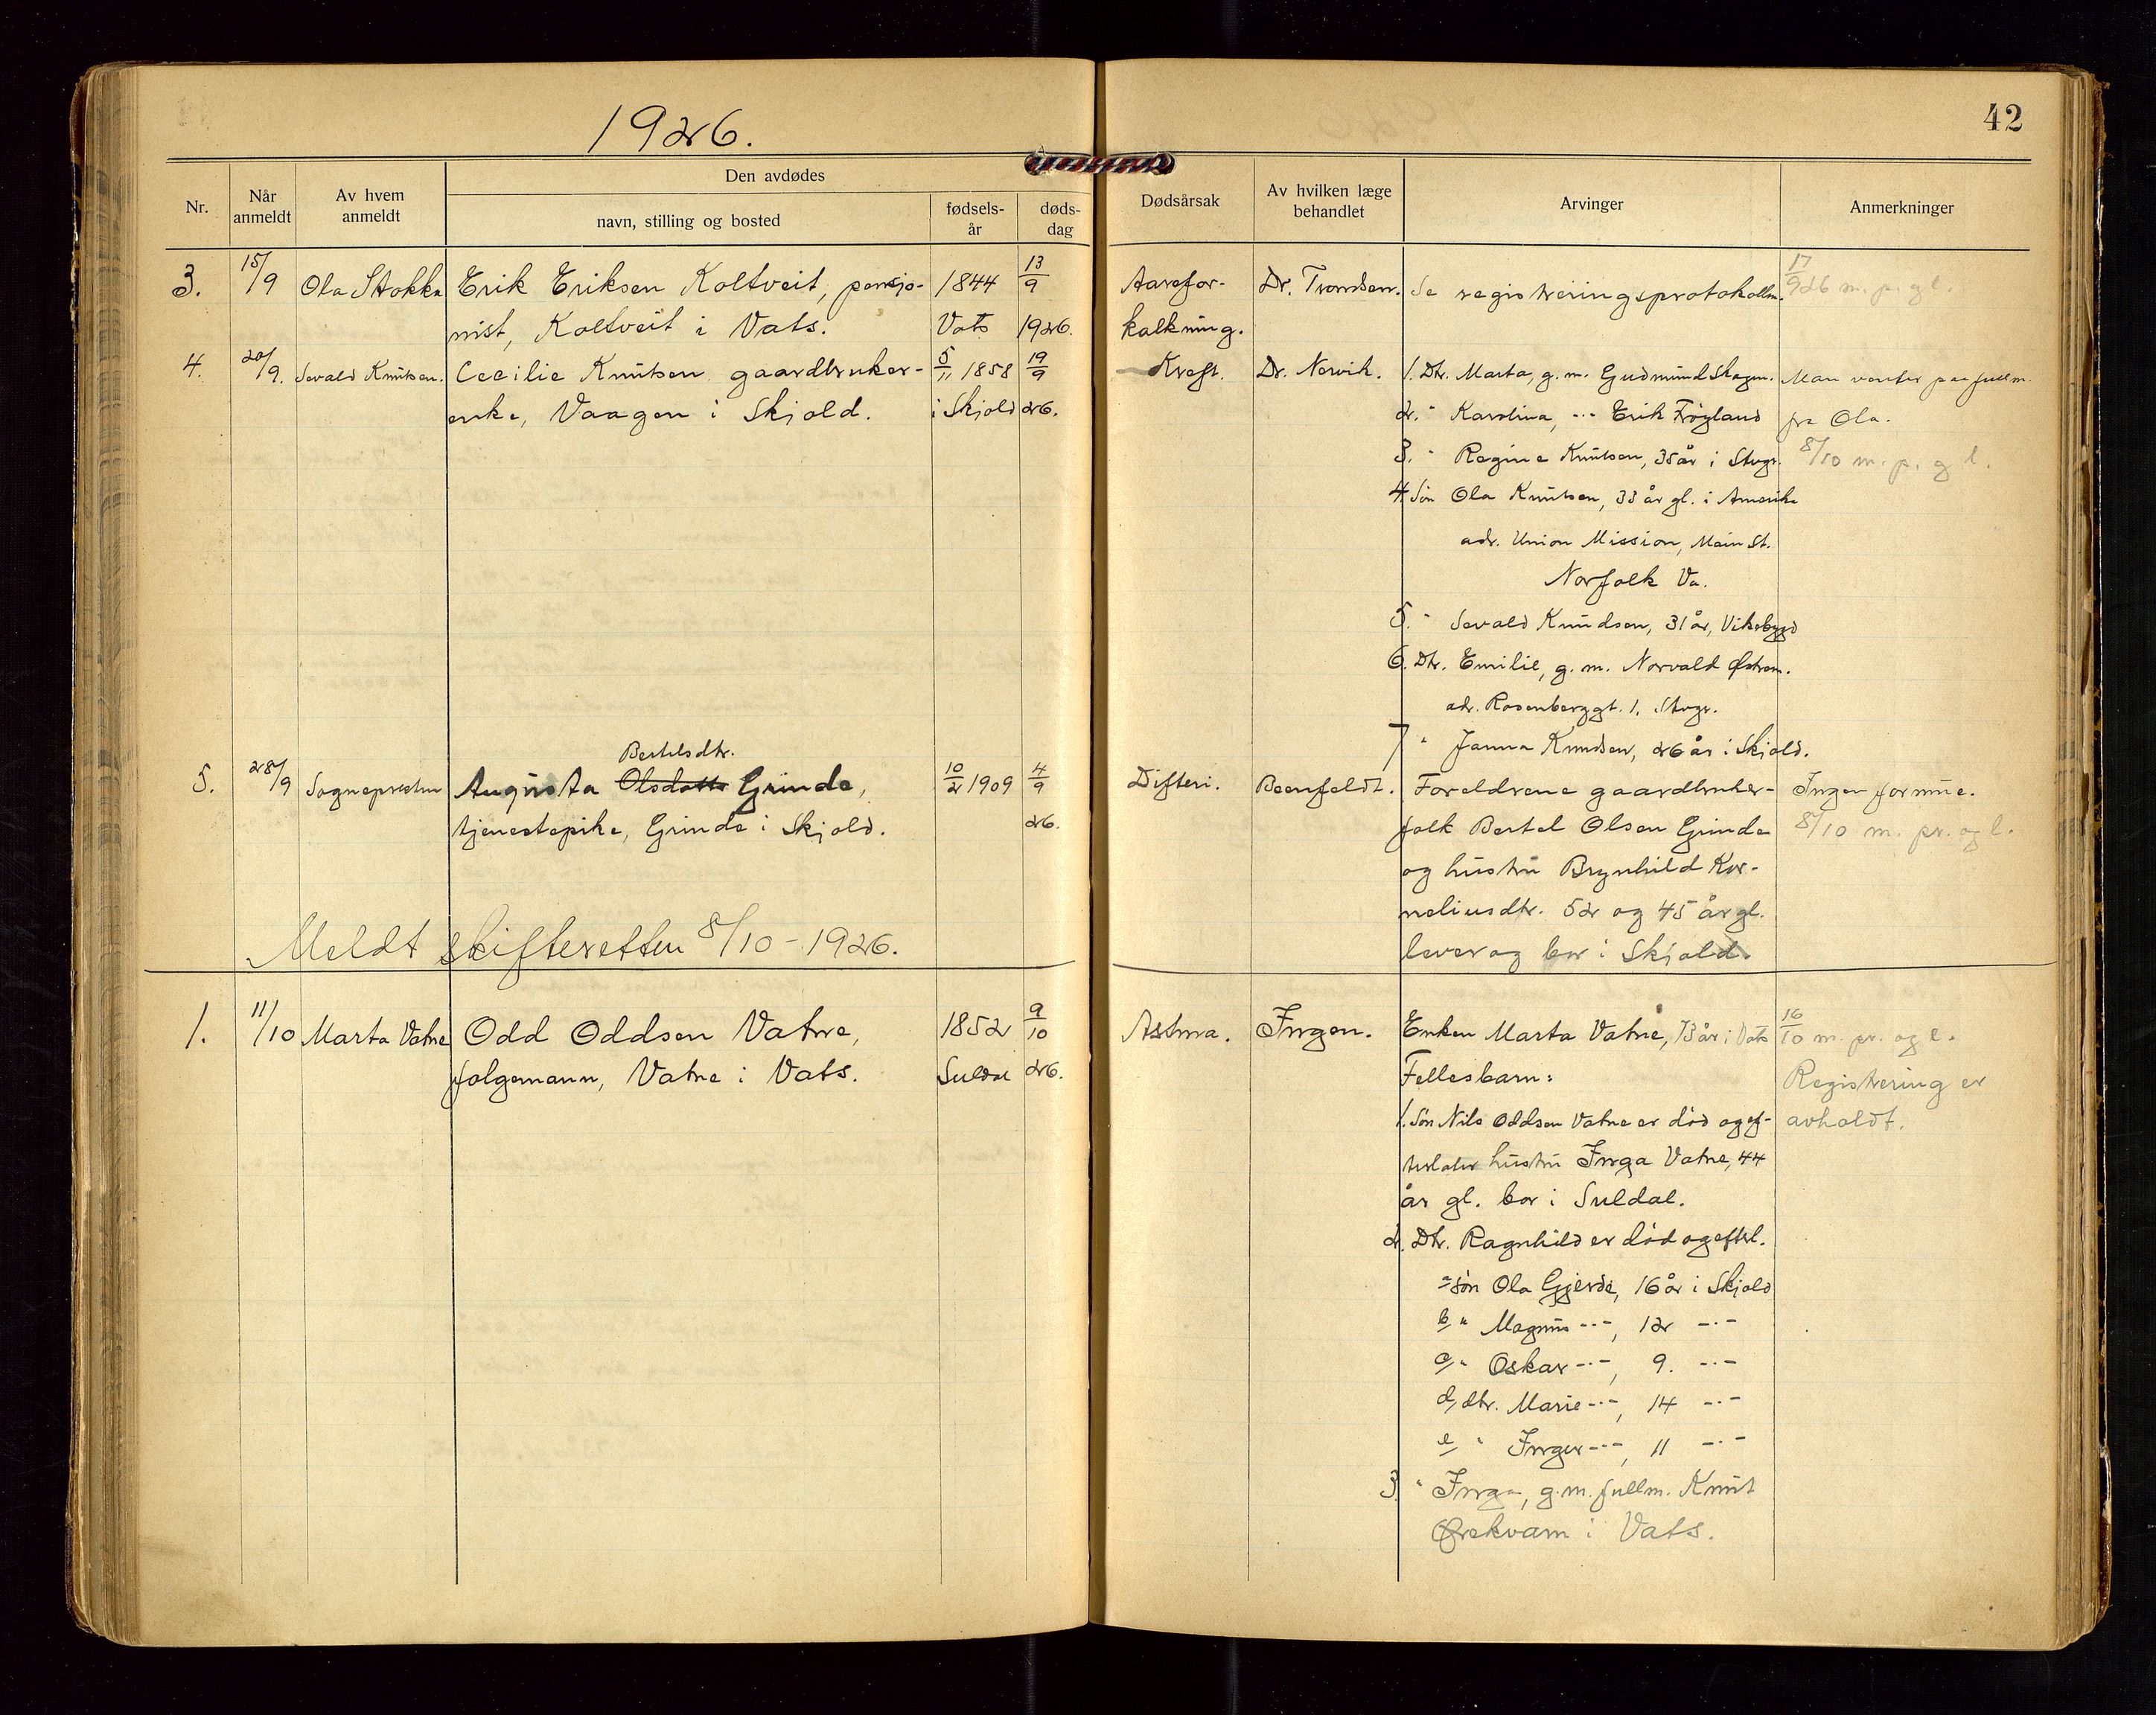 1926.
42
Nr.
Når anmeldt
Av hvem anmeldt
Den avdødes
navn, stilling og bosted
fødsels-år
døds-dag
Dødsårsak
Av hvilken læge behandlet
Arvinger
Anmerkninger
3. 15/9 Ola Stokka Erik Eriksen Koltveit, pensjo- 1844 13/9 Aarefor- Dr. Trondsen. Se registreringsprotokollen. 17/9 926 m. p. g l.
nist, Koltveit i Vats. Vats 1926. kalkning.
4. 20/9. Sevald Knutsen. Cecilie Knutsen gaardbruker- 5/11 1858 19/9 Kreft. Dr. Nervik. 1. Dtr. Marta, g. m. Gudmund Skagen. Man venter paa fullm.
enke, Vaagen i Skjold. i Skjold 26. 2. " Karolina, -"- Erik Frøyland fra Ola.
3. " Regine Knutsen, 35 år i Stvgr. 8/10 m. p. g l.
4. Søn Ola Knutsen, 33 år gl. i Amerika
adr. Union Mission, Main St.
Norfolk Va.
5. " Sevald Knudsen, 31 år, Vikebygd
6. Dtr. Emilie, g. m. Norvald Østrem.
adr. Rosenberggt. 1. Stvgr.
7 " Janna Knudsen, 26 år i Skjold.
Bertelsdtr.
5. 28/9 Sognepresten Augusta Olsdatte Grinde, 10/2 1909 4/9 Difteri. Beenfeldt. Foreldrene gaardbruker- Ingen formue.
tjenestepike, Grinde i Skjold. 26. folk Bertel Olsen Grinde 8/10 m. pr. og l.
og hustru Brynhild Kor-
neliusdtr. 52 og 45 år gl.
Meldt skifteretten 8/10 - 1926. lever og bor i Skjold.
1. 11/10 Marta Vatne Odd Oddsen Vatne, 1852 9/10 Astma. Ingen. Enken Marta Vatne, 73 år i Vats 16/10 m. pr. og l.
folgemann, Vatne i Vats. Suldal 26. Fellesbarn: Registrering er
1. Søn Nils Oddsen Vatne er død og ef- avholdt.
terlater hustru Inga Vatne, 44
år gl. bor i Suldal.
2. Dtr. Ragnhild er død og efterl.
a søn Ola Gjerde, 16 år i Skjold
b " Magnus -"-, 12 -"-
c " Oskar -"-, 9. -"-
d, dtr. Marie -"-, 14 -"-
e " Inger -"-, 11 -"-
3. " Inga, g. m. fullm. Knut
Ørekvam i Vats.